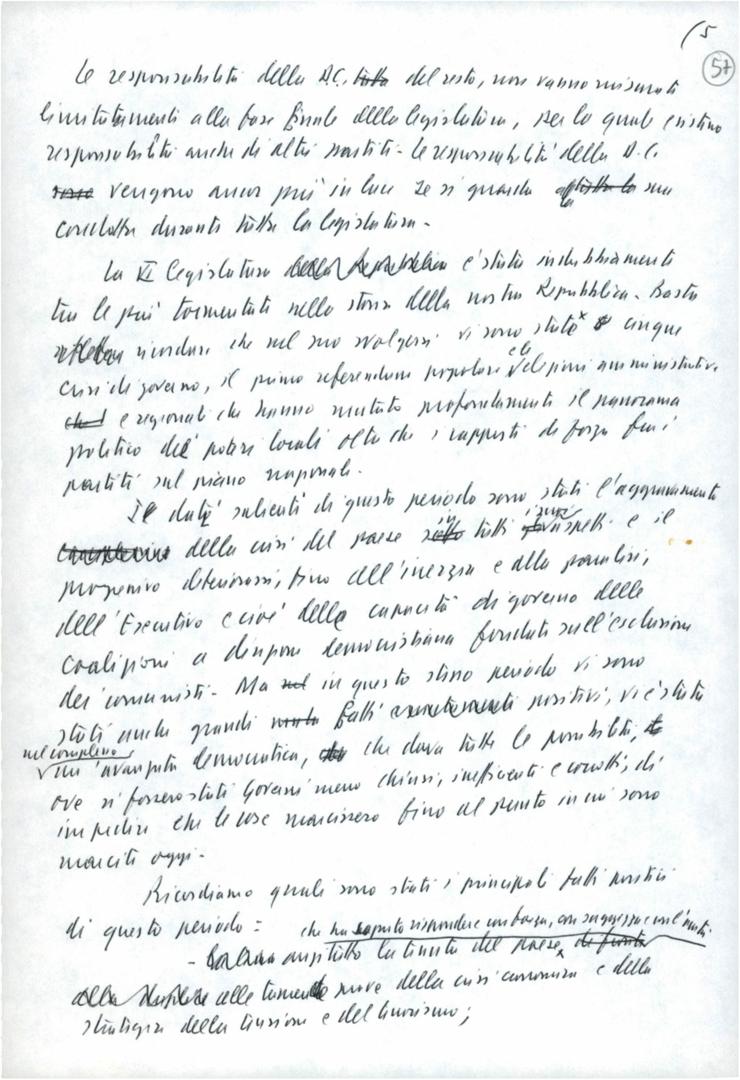 15
57
Le responsabilità della D.C. del resto, non vanno misurate
limitatamente alla fase finale della legislatura, per la quale esistono
responsabilità anche di altri partiti. Le responsabilità della D.C.
vengono ancor più in luce se si guarda alla sua
condotta durante tutta la legislatura.
La VI legislatura della Repubblica è stata indubbiamente
tra le più tormentate nella storia della nostra Repubblica. Basta
ricordare che nel suo svolgersi vi sono state cinque
crisi di governo, il primo referendum popolare e le elezioni amministrative
e regionali che hanno mutato profondamente il panorama
politico dei poteri locali oltre che i rapporti di forza fra i
partiti sul piano nazionale.
I dati salienti di questo periodo sono stati l'aggravamento
della crisi del paese in tutti i suoi aspetti e il
progressivo deteriorarsi, fino all'inerzia e alla paralisi,
dell'Esecutivo e cioè della capacità di governo delle
coalizioni a direzione democristiana fondate sull'esclusione
dei comunisti. Ma nel in questo stesso periodo vi sono
stati anche grandi fatti positivi, vi è stata
nel complesso
un'avanzata democratica, che dava tutte le possibilità,
ove si fossero stati governi meno chiusi, inefficienti e corrotti, di
impedire che le cose marcissero fino al punto in cui sono
marcite oggi.
Ricordiamo quali sono stati i principali fatti positivi
di questo periodo:
che ha saputo rispondere con forza, con saggezza e con l'unità
- anzitutto la tenuta del paese, di fronte
alle tremende prove della crisi economica e della
strategia della tensione e del terrorismo;